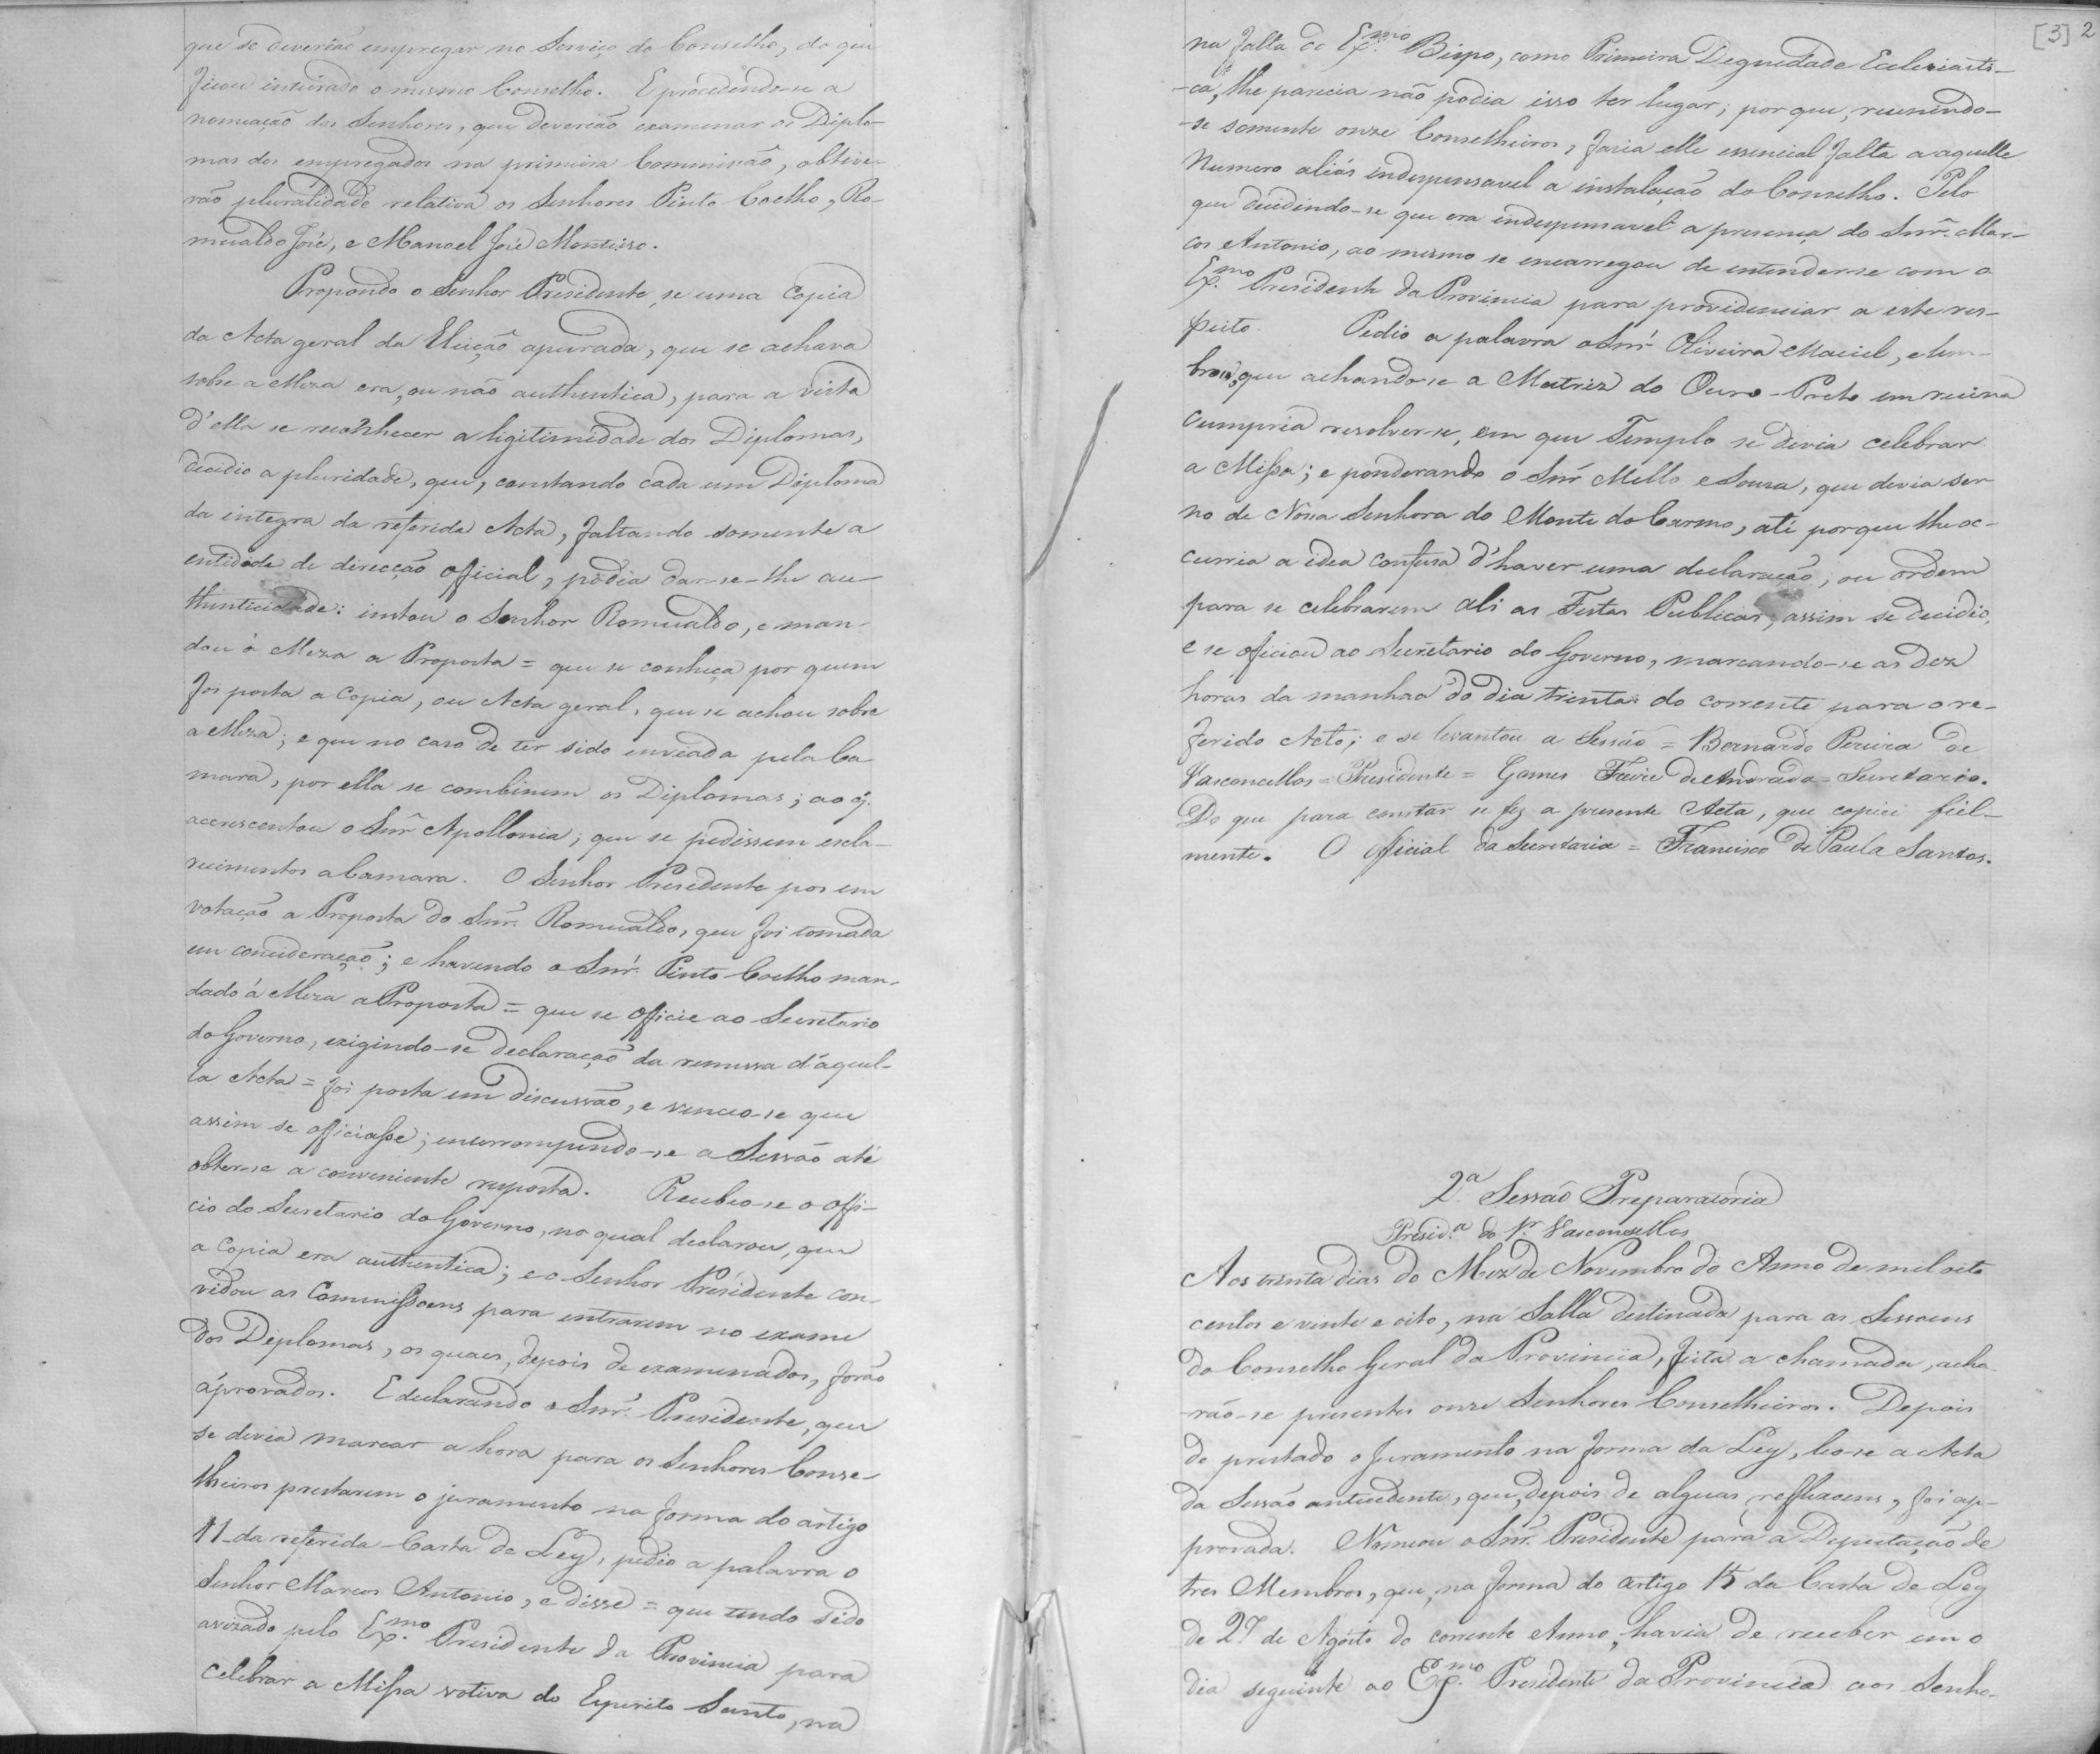 que se deverião empregar no Serviço do Conselho, do que
ficou inteirado o mesmo Conselho. E procedendo-se a
nomeação dos Senhores, que deverião examinar os Diplo-
mas dos empregados na primeira Commissão, obtive-
rão pluralidade relativa os Senhores Pinto Coelho, Ro-
mualdo José, e Manoel José Monteiro.
Propondo o Senhor Presidente, se uma Copia
da Acta geral da Eleição apurada, que se achava
sobre a Meza era, ou não authentica, para a vista
d'ella se reconhecer a legitimidade dos Diplomas,
decidio a pluridade, que, constando cada um Diploma
da integra da referida Acta, faltando somente a
entidade de direcção official, podia dar-se-lhe au-
thenticidade: instou o Senhor Romualdo, e man-
dou á Meza a Proposta = que se conheça por quem
foi posta a Copia, ou Acta geral, que se achou sobre
a Meza; e que no caso de ter sido enviada pela Ca
mara, por ella se combinem os Diplomas; ao q.
accrescentou o Snr. Apollonia; que se pedissem escla-
recimentos a Camara. O Senhor Presidente pos em
votação a Proposta do Snr. Romualdo, que foi tomada
em consideração; e havendo o Snr. Pinto Coelho man-
dado á Meza a Proposta = que se officie ao Secretario
do Governo, exigindo-se declaração da remessa d'aquel-
la Acta = foi posta em discussão, e venceo-se que
assim se officiasse; interrompendo-se a Sessão até
obter-se a conveniente resposta. Recebeo-se o offi-
cio do Secretario do Governo, no qual declarou, que
a Copia era authentica; e o Senhor Presidente con-
vidou as Commissoens para entrarem no exame
dos Diplomas, os quaes, depois de examinados, forão
aprovados. E declarando o Snr. Presidente, que
se devia marcar a hora para os Senhores Conse-
lheiros prestarem o juramento na forma do artigo
11 da referida Carta de Ley, pedio a palavra o
Senhor Marcos Antonio, e disse = que tendo sido
avizado pelo Exmo. Presidente da Provincia para
celebrar a Missa votiva do Espirito Santo, na
[3] 2
na falta do Exmo. Bispo, como Primeira Deguidade Eclesiasti-
-ca, lhe parecia não podia isso ter lugar; por que, reunindo-
-se somente onze Conselheiros, faria elle essencial falta a aquelle
Numero aliás indespensavel a instalação do Conselho. Pelo
que decidindo-se que era indespensavel a presença do Snr. Mar-
cos Antonio, ao mesmo se encarregou de entender-se com o
Exmo. Presidente da Provincia para providenciar a este res-
peito. Pedio a palavra o Snr. Oliveira Maciel, e lem-
brou, que achando-se a Matriz do Ouro-Preto em ruina
cumpria resolver-se, em que Templo se devia celebrar
a Missa; e ponderando o Snr. Mello e Souza, que devia ser
no de Nossa Senhora do Monte do Carmo, até porque lhe oc-
curria a idea confusa d'haver uma declaração, ou ordem
para se celebrarem ali as Festas Publicas, assim se decidio,
e se oficiou ao Secretario do Governo, marcando-se as dez
horas da manhaã do dia trinta do corrente para o re-
ferido Acto; e se levantou a Sessão = Bernardo Pereira de
Vasconcellos = Presidente = Gomes Freire de Andrada = Secretario.
Do que para constar se fez a presente Acta, que copiei fiel-
mente. O Oficial da Secretaria = Francisco de Paula Santos.
2.a Sessão Preparatoria
Presid.a do Sr. Vasconcellos
Aos trinta dias do Mez de Novembro do Anno de mil oito
centos e vinte e oito, na Salla destinada para as Sessoens
do Conselho Geral da Provincia, feita a chamada, acha
rão-se presentes onze Senhores Conselheiros. Depois
de prestado o Juramento na forma da Ley, leo-se a Acta
da Sessão antecedente, que, depois de alguas reflexoens, foi ap-
provada. Nomeou o Snr. Presidente para a Deputação de
tres Membros, que, na forma do artigo 15 da Carta de Ley
de 27 de Agosto do corrente Anno, havia de receber em o
dia seguinte ao Exmo. Presidente da Provincia aos Senho-